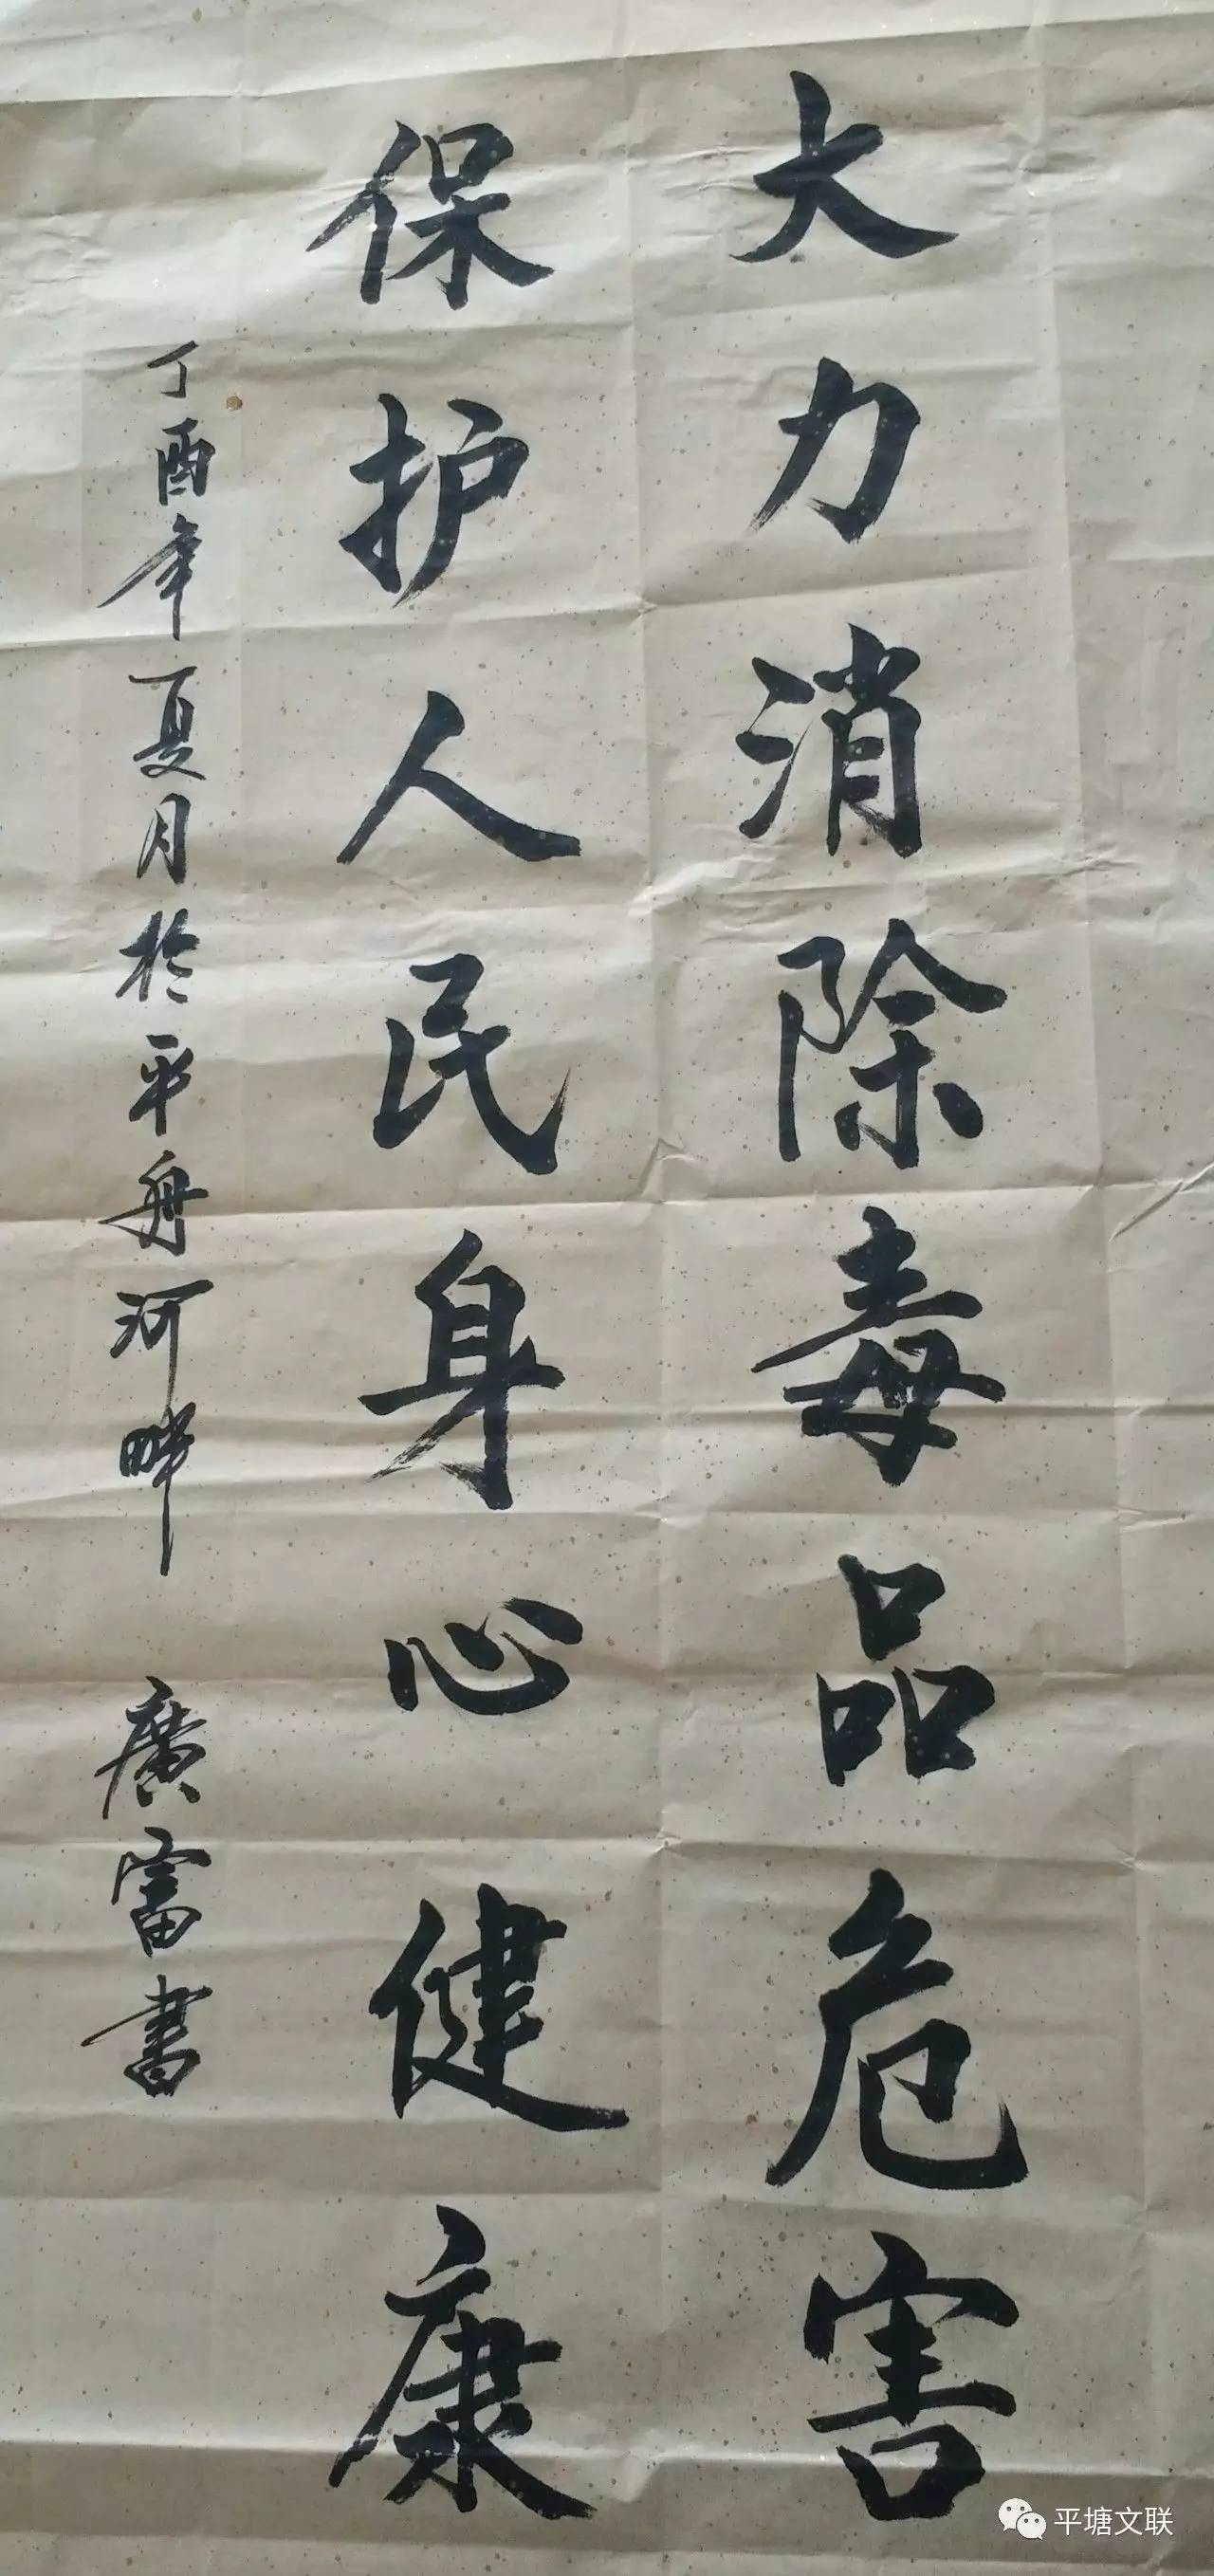 大力消除毒品危害
保护人民身心健康
丁酉年夏月於平舟河畔 廣富書
平塘文联